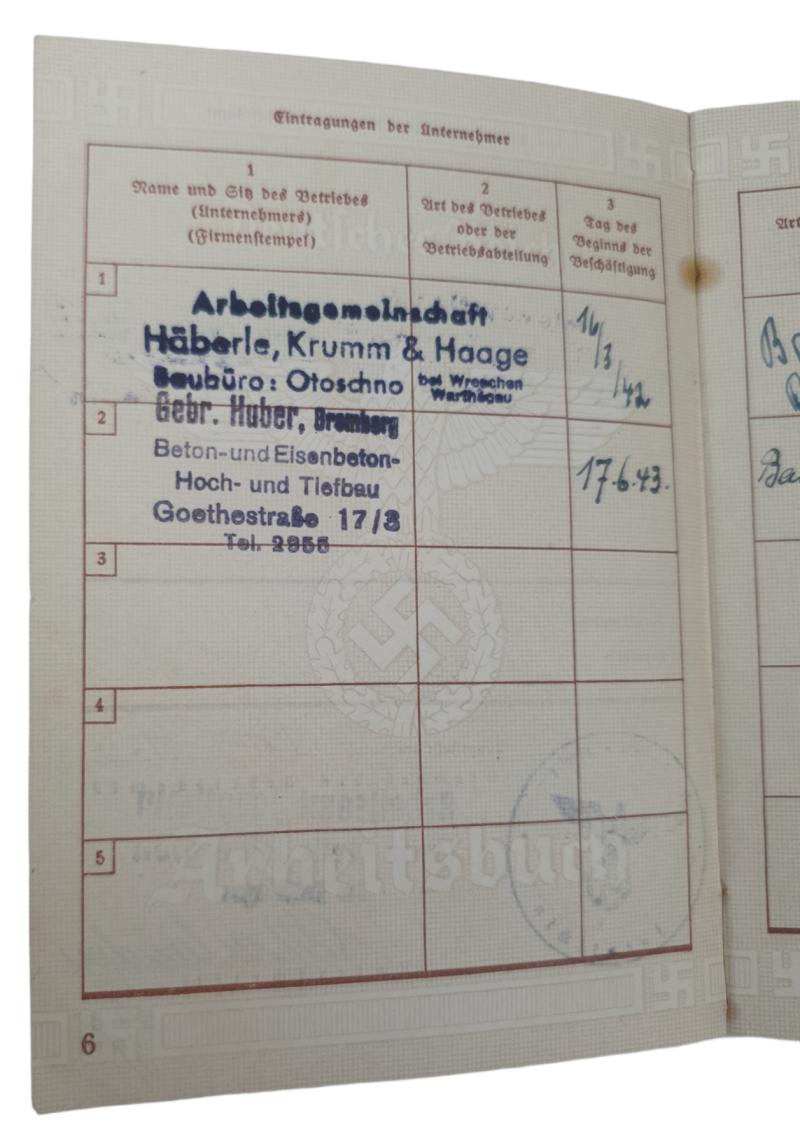 Eintragungen der Unternehmer
1
Name und Sitz des Betriebes
(Unternehmers)
(Firmenstempel)
2
Art des Betriebes
oder der
Betriebsabteilung
3
Tag des
Beginns der
Beschäftigung
1
Arbeitsgemeinschaft
Häberle, Krumm & Haage
Baubüro: Otoschno bei Wreschen
Warthegau
16/3/42
2
Gebr. Huber, Bromberg
Beton- und Eisenbeton-
Hoch- und Tiefbau
Goethestraße 17/3
Tel. 2955
17.6.43.
3
4
5
Arbeitsbuch
6
Art